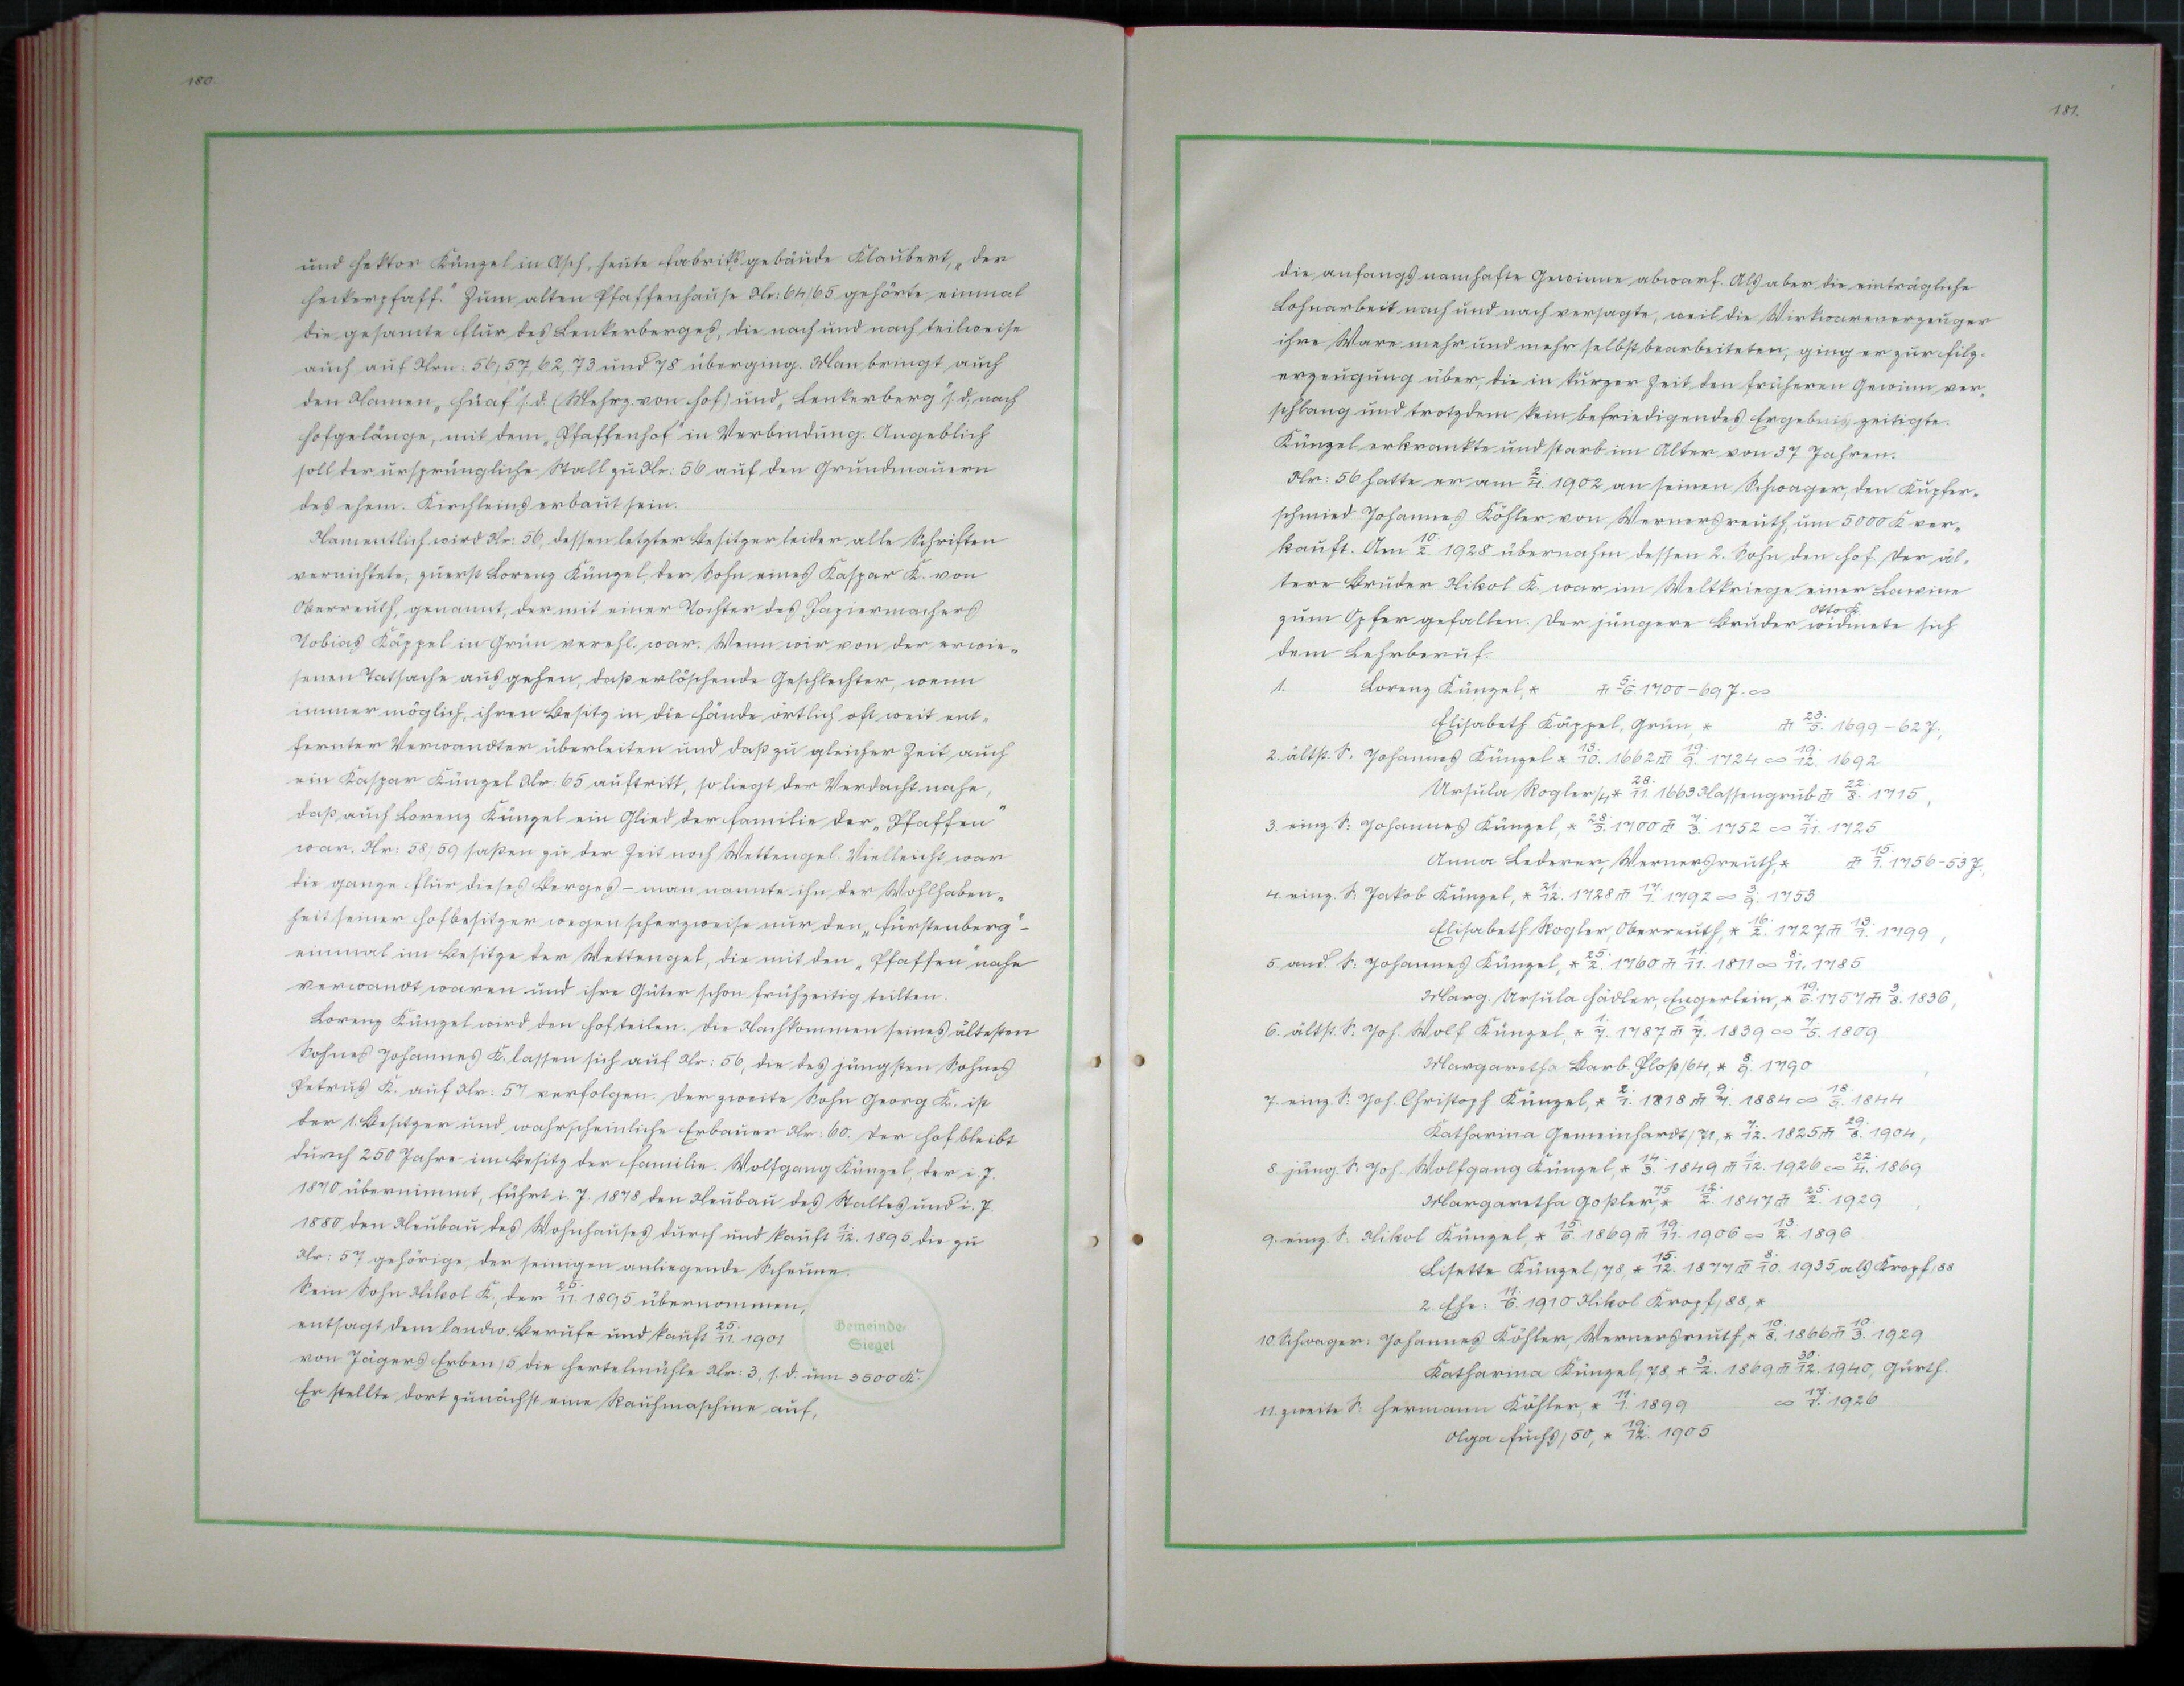 180.
und Hektor Künzel in Asch, heute Fabriksgebäude Klaubert, „der
Heckerpfaff." Zum alten Pfaffenhause Nr: 64/65 gehörte einmal
die gesamte Flur des Lenkerberges, die nach und nach teilweise
auch auf Nrn: 56, 57, 62, 73 und 78 überging. Man bringt auch
den Namen „Hüaf" s. d. (Mehrz. von Hof) und „Lenkerberg" s. d. nach
Hofgelänge, mit dem „Pfaffenhof" in Verbindung. Angeblich
soll der ursprüngliche Stall zu Nr: 56 auf den Grundmauern
des ehem. Kirchleins erbaut sein.
Namentlich wird Nr: 56, dessen letzter Besitzer leider alle Schriften
vernichtete, zuerst Lorenz Künzel, der Sohn eines Kaspar K. von
Oberreuth, genannt, der mit einer Tochter des Papiermachers
Tobias Käppel in Grün verehl. war. Wenn wir von der erwie-
senen Tatsache ausgehen, daß erlöschende Geschlechter, wenn
immer möglich, ihren Besitz in die Hände örtlich oft weit ent-
fernter Verwandter überleiten und daß zu gleicher Zeit auch
ein Kaspar Künzel Nr: 65 auftritt, so liegt der Verdacht nahe,
daß auch Lorenz Künzel ein Glied der Familie der „Pfaffen"
war. Nr: 58/59 saßen zu der Zeit noch Wettengel. Vielleicht war
die ganze Flur dieses Berges – man nannte ihn der Wohlhaben-
heit seiner Hofbesitzer wegen scherzweise nur den „Fürstenberg" –
einmal im Besitze der Wettengel, die mit den „Pfaffen" nahe
verwandt waren und ihre Güter schon frühzeitig teilten.
Lorenz Künzel wird den Hof teilen. Die Nachkommen seines ältesten
Sohnes Johannes K. lassen sich auf Nr: 56, die des jüngsten Sohnes
Petrus K. auf Nr: 57 verfolgen. Der zweite Sohn Georg K. ist
der 1. Besitzer und wahrscheinliche Erbauer Nr: 60. Der Hof bleibt
durch 250 Jahre im Besitz der Familie. Wolfgang Künzel, der i. J.
1870 übernimmt, führt i. J. 1878 den Neubau des Stalles und i. J.
1880 den Neubau des Wohnhauses durch und kauft 1./12. 1895 die zu
Nr: 57 gehörige, der seinigen anliegende Scheune.
Sein Sohn Nikol K., der 25./11. 1895 übernommen,
entsagt dem landw. Berufe und kauft 25./11. 1901
von Jägers Erben/5 die Hertelmühle Nr: 3, s. d. um 3600 K.
Er stellte dort zunächst eine Rauhmaschine auf,
Gemeinde-
Siegel
181.
die anfangs namhafte Gewinne abwarf. Als aber die einträgliche
Lohnarbeit nach und nach versagte, weil die Wirkwarenerzeuger
ihre Ware mehr und mehr selbst bearbeiteten, ging er zur Filz-
erzeugung über, die in kurzer Zeit den früheren Gewinn ver-
schlang und trotzdem kein befriedigendes Ergebnis zeitigte.
Künzel erkrankte und starb im Alter von 37 Jahren.
Nr: 56 hatte er am 2./4. 1902 an seinen Schwager, den Kupfer-
schmied Johannes Köhler von Wernersreuth, um 5000 K ver-
kauft. Am 10./2. 1928 übernahm dessen 2. Sohn den Hof. Der äl-
tere Bruder Nikol K. war im Weltkriege einer Lawine
zum Opfer gefallen. Der jüngere Bruder Otto K. widmete sich
dem Lehrberuf.
1. Lorenz Künzel, * ⚰ 5./6. 1700 – 69 J. ∞
Elisabeth Käppel, Grün, * ⚰ 23./5. 1699 – 62 J.,
2. ältst. S. Johannes Künzel * 13./10. 1662 ⚰ 19./9. 1724 ∞ 19./12. 1692
Ursula Rogler/4 * 28./11. 1663 Nassengrub ⚰ 22./8. 1715,
3. einz. S: Johannes Künzel, * 28./5. 1700 ⚰ 7./3. 1752 ∞ 7./11. 1725
Anna Lederer, Wernersreuth, * ⚰ 15./1. 1756 – 53 J.,
4. einz. S: Jakob Künzel, * 21./12. 1728 ⚰ 17./1. 1792 ∞ 3./9. 1753
Elisabeth Rogler, Oberreuth, * 16./2. 1727 ⚰ 13./1. 1799,
5. and. S: Johannes Künzel, * 25./2. 1760 ⚰ 11./11. 1811 ∞ 8./11. 1785
Marg. Ursula Hädler, Engerlein, * 19./6. 1757 ⚰ 3./8. 1836,
6. ältst. S. Joh. Wolf Künzel, * 1./7. 1787 ⚰ 1./7. 1839 ∞ 7./5. 1809
Margaretha Barb. Ploß/64, * 8./9. 1790
7. einz. S: Joh. Christoph Künzel, * 2./1. 1818 ⚰ 9./4. 1884 ∞ 18./5. 1844
Katharina Gemeinhardt/71, * 7./12. 1825 ⚰ 29./8. 1904,
8. jüng. S. Joh. Wolfgang Künzel, * 14./3. 1849 ⚰ 1./12. 1926 ∞ 22./4. 1869
Margaretha Goßler/75, * 12./2. 1847 ⚰ 25./2. 1929
9. einz. S. Nikol Künzel, * 15./6. 1869 ⚰ 19./11. 1906 ∞ 13./2. 1896
Lisette Künzel/78, * 15./12. 1877 ⚰ 8./10. 1935 als Kropf/88
2. Ehe: 11./6. 1910 Nikol Kropf/88, *
10. Schwager: Johannes Köhler, Wernersreuth, * 10./8. 1866 ⚰ 10./3. 1929
Katharina Künzel/78 * 3./2. 1869 ⚰ 30./12. 1940, Gürth.
11. zweite S: Hermann Köhler, * 11./1. 1899 ∞ 17./7. 1926
Olga Fuchs/50, * 19./12. 1905